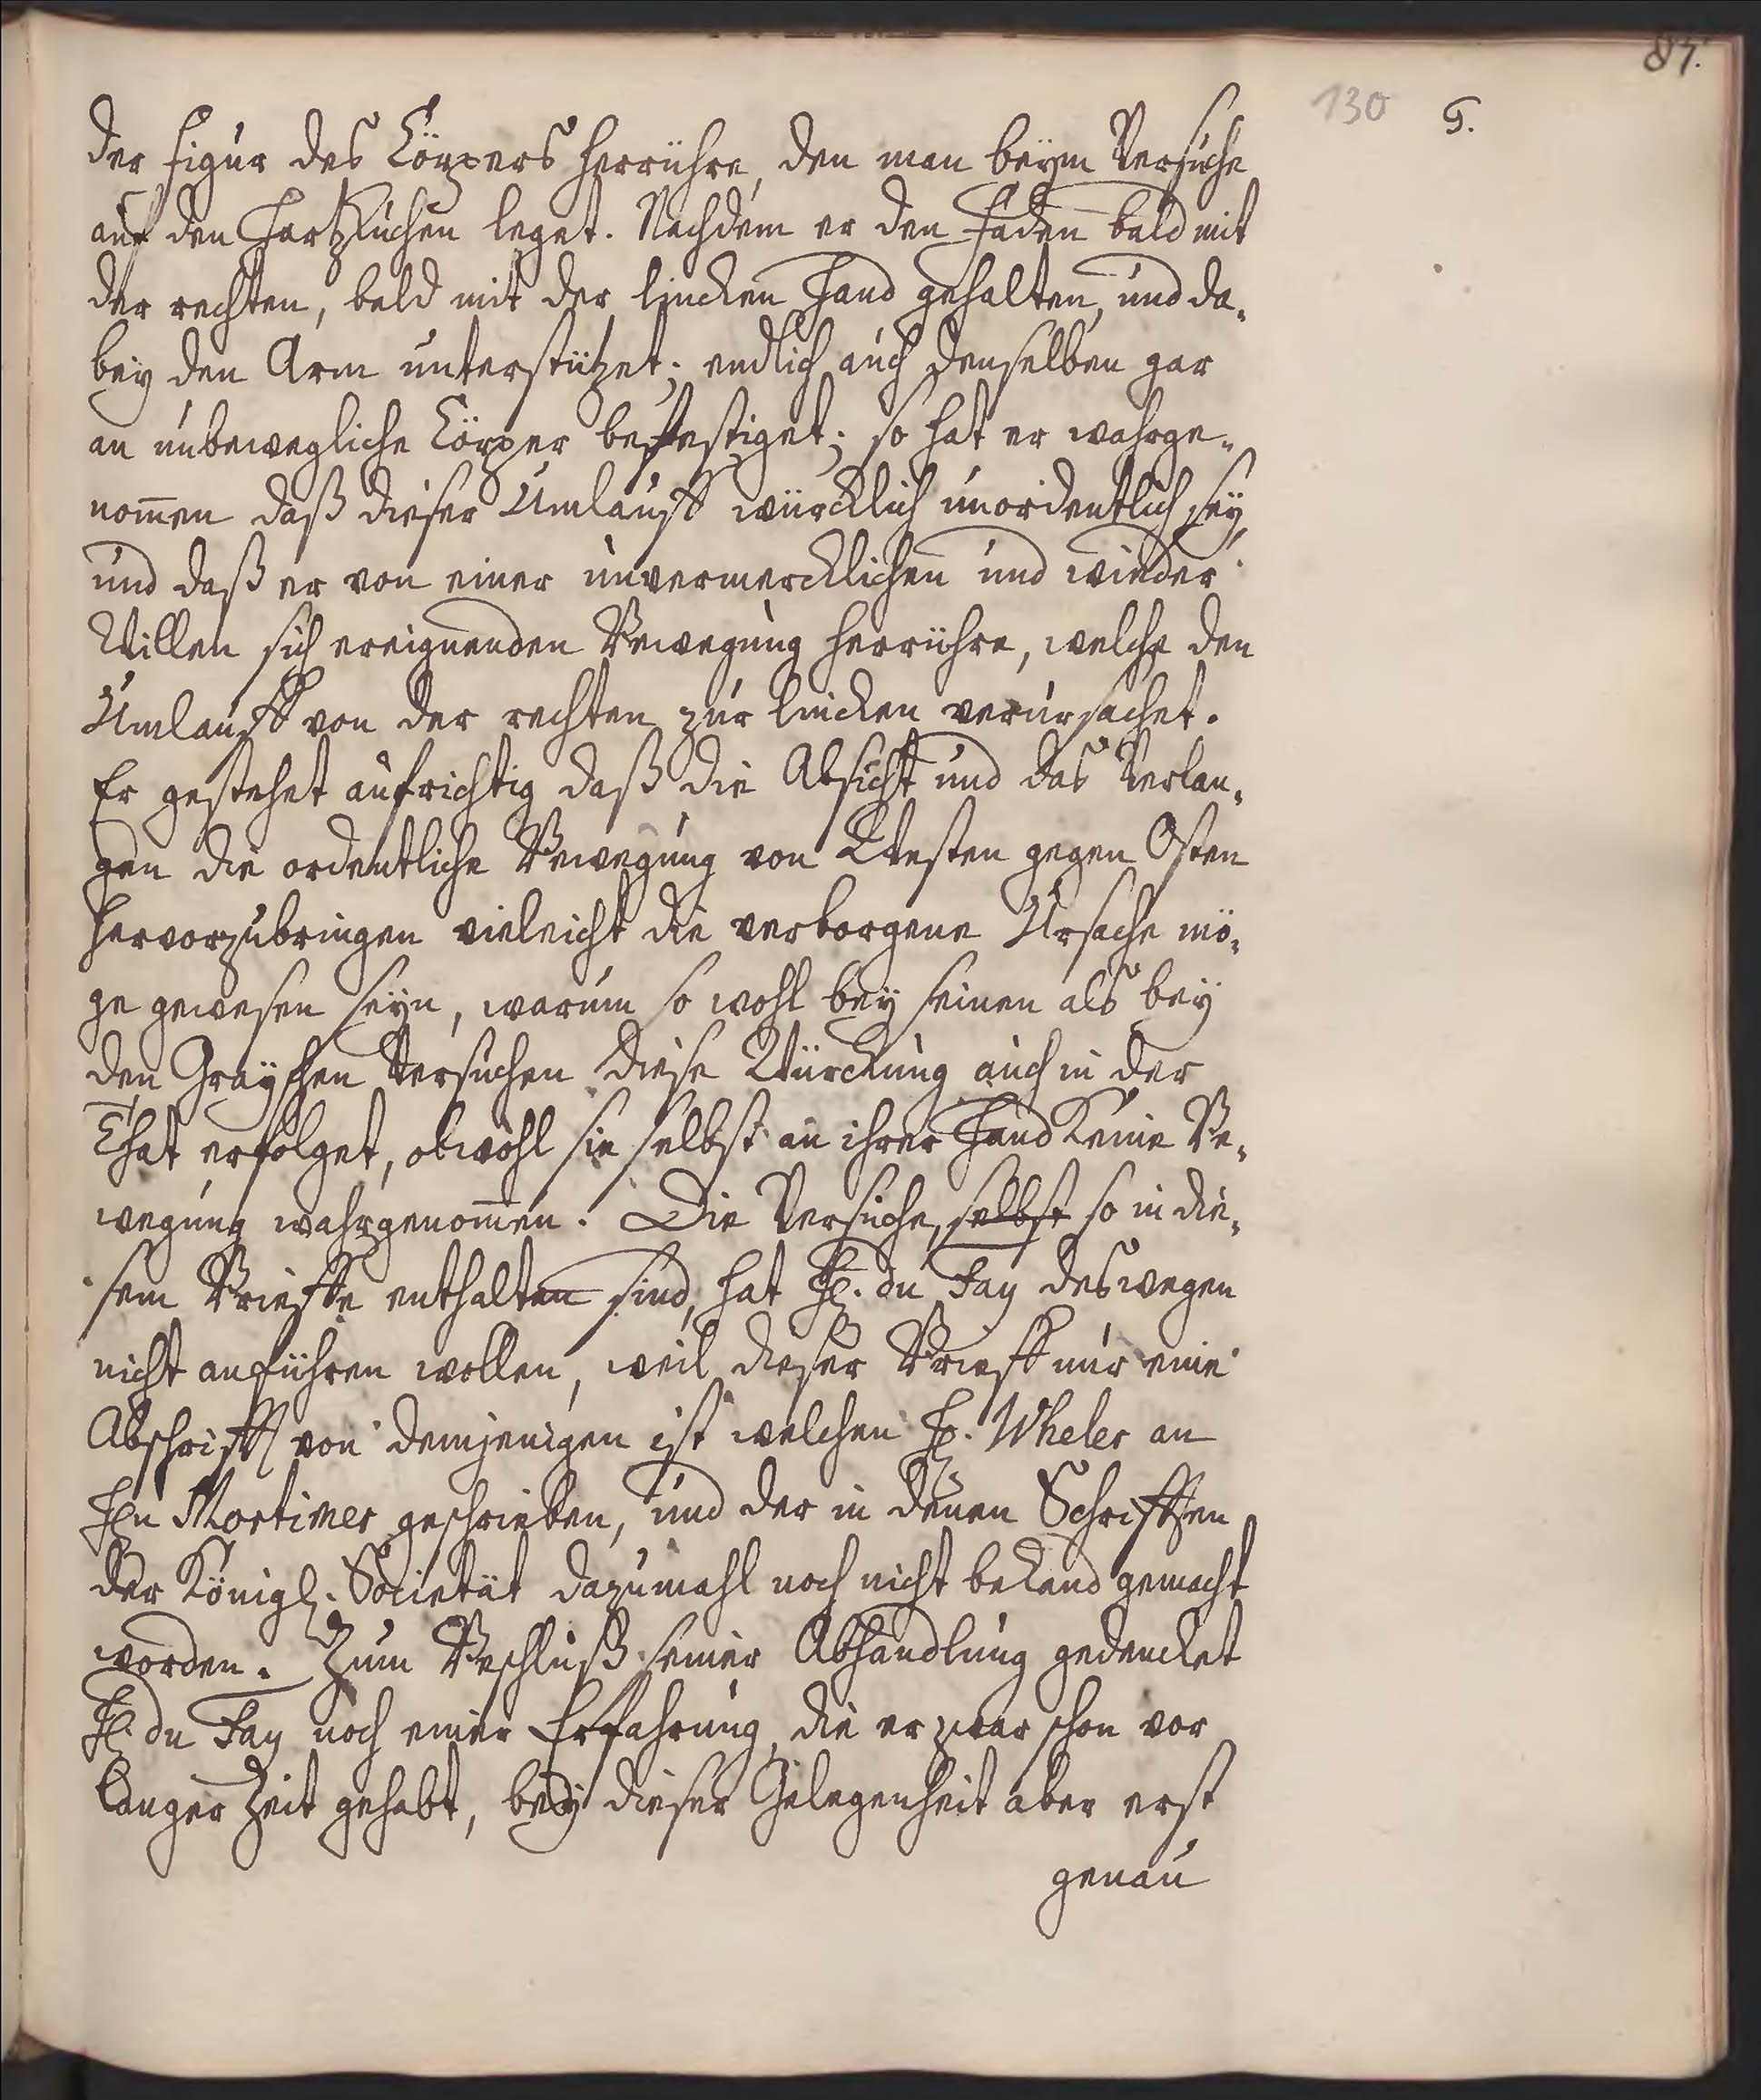 84.
130 G.
der Figur des Cörpers herrühre, den man beym Versuche
auf den Hartzkuchen leget. Nachdem er den Faden bald mit
der rechten, bald mit der lincken Hand gehalten, und da-
bey den Arm unterstützet; endlich auch denselben gar
an unbewegliche Cörper befestiget; so hat er wahrge-
nom̄en daß dieser Umlauff würcklich unordentlich sey,
und daß er von einer unvermercklichen und wieder
Willen sich ereignenden Bewegung herrühre, welche den
Umlauff von der rechten zur lincken verursachet.
Er gestehet aufrichtig daß die Absicht und das Verlan-
gen die ordentliche Bewegung von Westen gegen Osten
hervorzubringen vieleicht die verborgene Ursache mö-
ge gewesen seyn, warum so wohl bey seinen als bey
den Grayschen Versuchen diese Würckung auch in der
That erfolget, obwohl sie selbst an ihrer Hand keine Be-
wegung wahrgenom̄en. Die Versuche, selbst so in die-
sem Brieffe enthalten sind, hat H. du Fay deswegen
nicht anführen wollen, weil dieser Brieff nur eine
Abschrifft von demjenigen ist welchen H. Wheler an
Hn Mortimer geschrieben, und der in denen Schrifften
der Königl. Societät dazumahl noch nicht bekand gemacht
worden. Zum Beschluß seiner Abhandlung gedencket
H. du Fay noch einer Erfahrung, die er zwar schon vor
langer Zeit gehabt, bey dieser Gelegenheit aber erst
genau